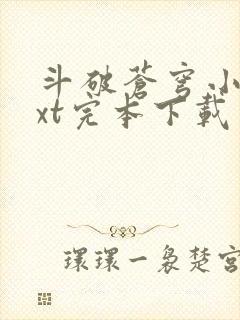 斗破蒼穹小
xt完本下載
環環一裊楚宮